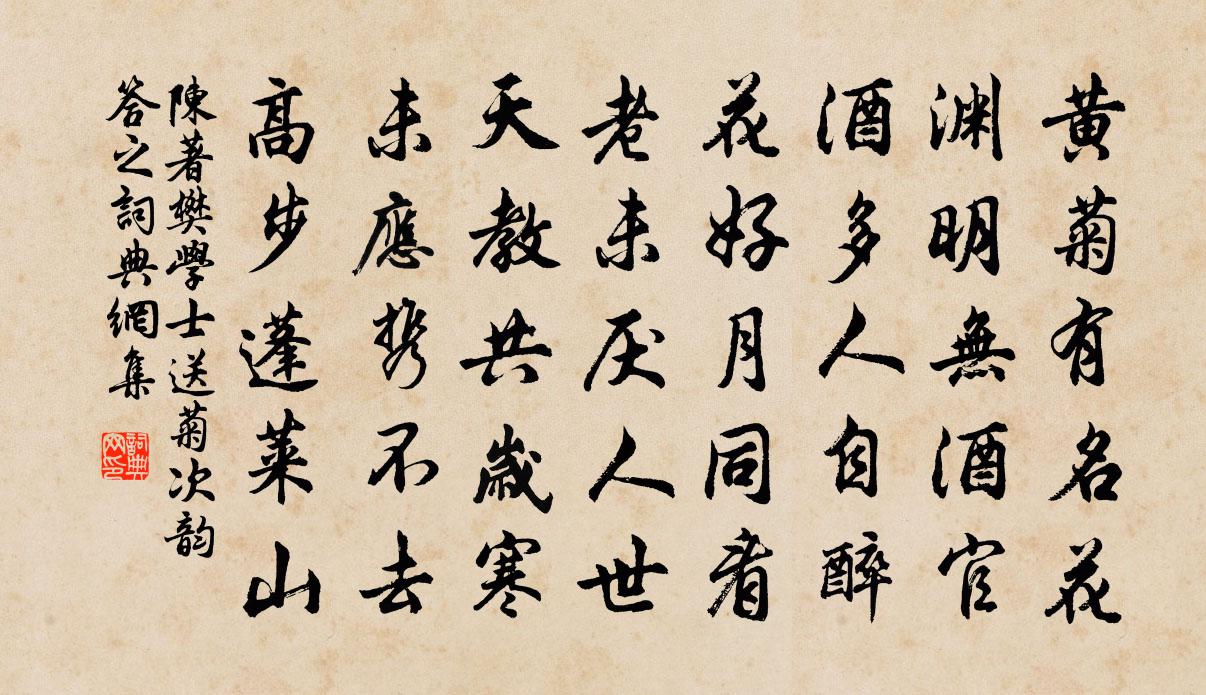 黄菊有名花
渊明無酒官
酒多人自醉
花好月同看
老未厌人世
天教共歳寒
未應携不去
高步蓬莱山
陳著樊學士送菊次韵
答之詞典網集
詞典网印